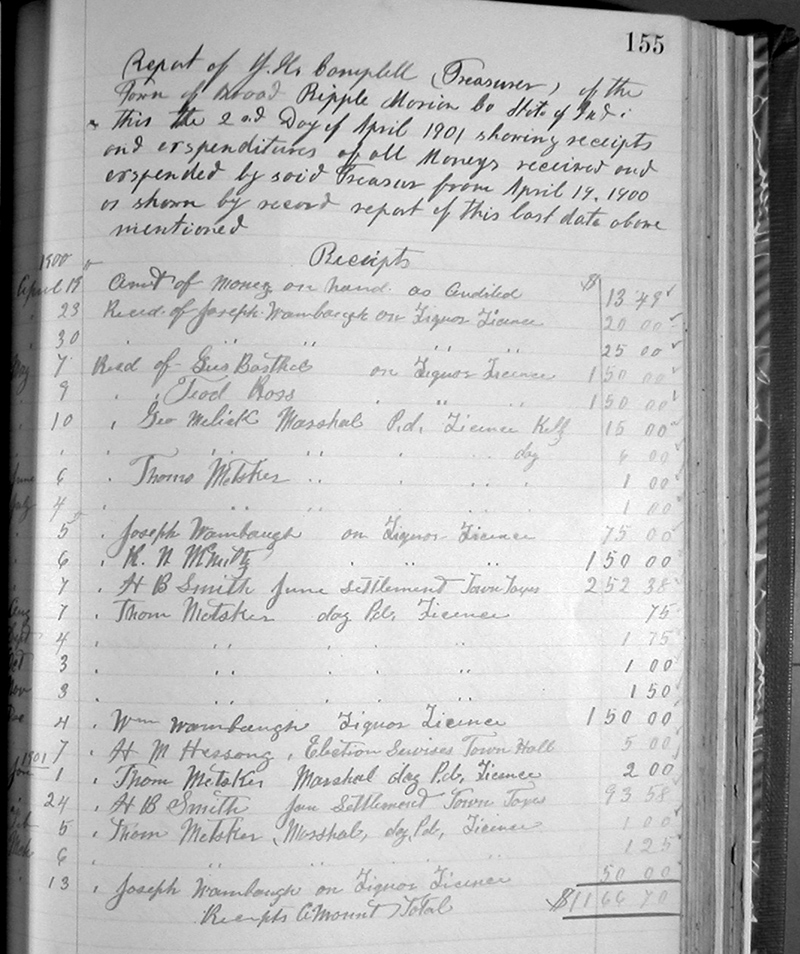 155
Report of J. H. Campbell (Treasurer) of the
Town of Broad Ripple Marion Co State of Ind :
this the 2nd Day of April 1901 showing receipts
and exspenditures of all Moneys received and
exspended by said Treasur from April 19, 1900
as shown by record report of this last date above
mentioned
Receipts
1900
April 19 Amt of money on hand as Audited $ 13 49
" 23 Recd. of Joseph Wambaugh on Liquor Licence 20 00
" 30 " " " " 25 00
May 7 Recd of Gus Barthel on Liquor Licence 150 00
" 9 " Teod Ross " " " 150 00
" 10 " Geo Melick Marshal Pd. Licence 15 00
" " " " " dog 6 00
June 6 " Thoms Metsker " " " " 1 00
July 4 " " " " " 1 00
" 5 " Joseph Wambaugh on Liquor Licence 75 00
" 6 " R. N. " " " 150 00
" 7 " H B Smith June settlement Town Taxes 252 38
Aug 7 " Thom Metsker dog Pd. Licence 75
Sept 4 " " " " " 1 75
Oct 3 " " " " " 1 00
Nov 3 " " " " " 1 50
Dec 4 " Wm Wambaugh Liquor Licence 150 00
" 7 " H M Hessong, Election Servises Town Hall 5 00
1901
Jan 1 " Thom Metsker Marshal dog Pd. Licence 2 00
" 24 " H B Smith Jan Settlement Town Taxes 93 58
Feb 5 " Thom Metsker, Marshal, dog Pd, Licence 1 00
Mch 6 " " " " " " 1 25
" 13 " Joseph Wambaugh on Liquor Licence 50 00
Receipts Amount Total $1166 70